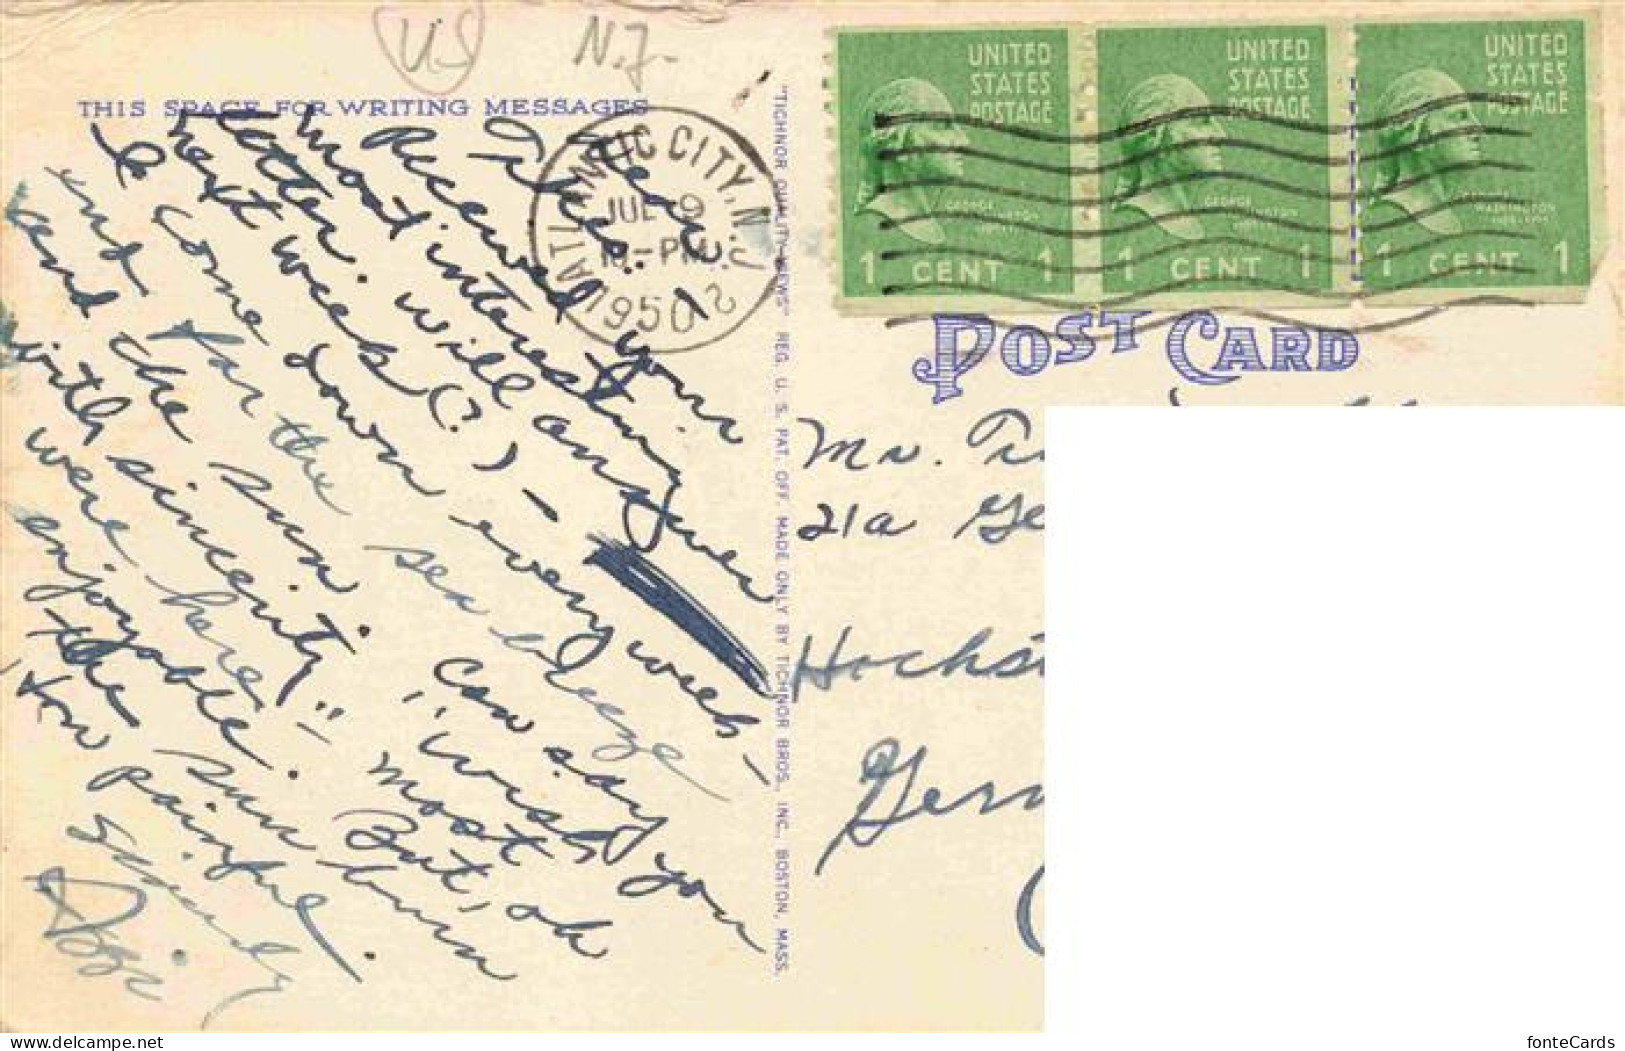 US
N.J.
THIS SPACE FOR WRITING MESSAGES
ATLANTIC CITY, N.J.
JUL 9
PM
1950
2
Dear
Received your
most interesting
letter. Will answer
next week (?) –
I come down every week-
end for the sea breeze
and the sun. Can say
with sincerity "wish you
were here" most
enjoyable. But, oh
the sun burn
painful.
"TICHNOR QUALITY VIEWS" REG. U. S. PAT. OFF. MADE ONLY BY TICHNOR BROS., INC., BOSTON, MASS.
UNITED STATES POSTAGE
GEORGE WASHINGTON
1 CENT 1
UNITED STATES POSTAGE
GEORGE WASHINGTON
1 CENT 1
UNITED STATES POSTAGE
GEORGE WASHINGTON
1 CENT 1
POST CARD
Mr.
21a Ge
Hochs
Germ
delcampe.net
fonteCards